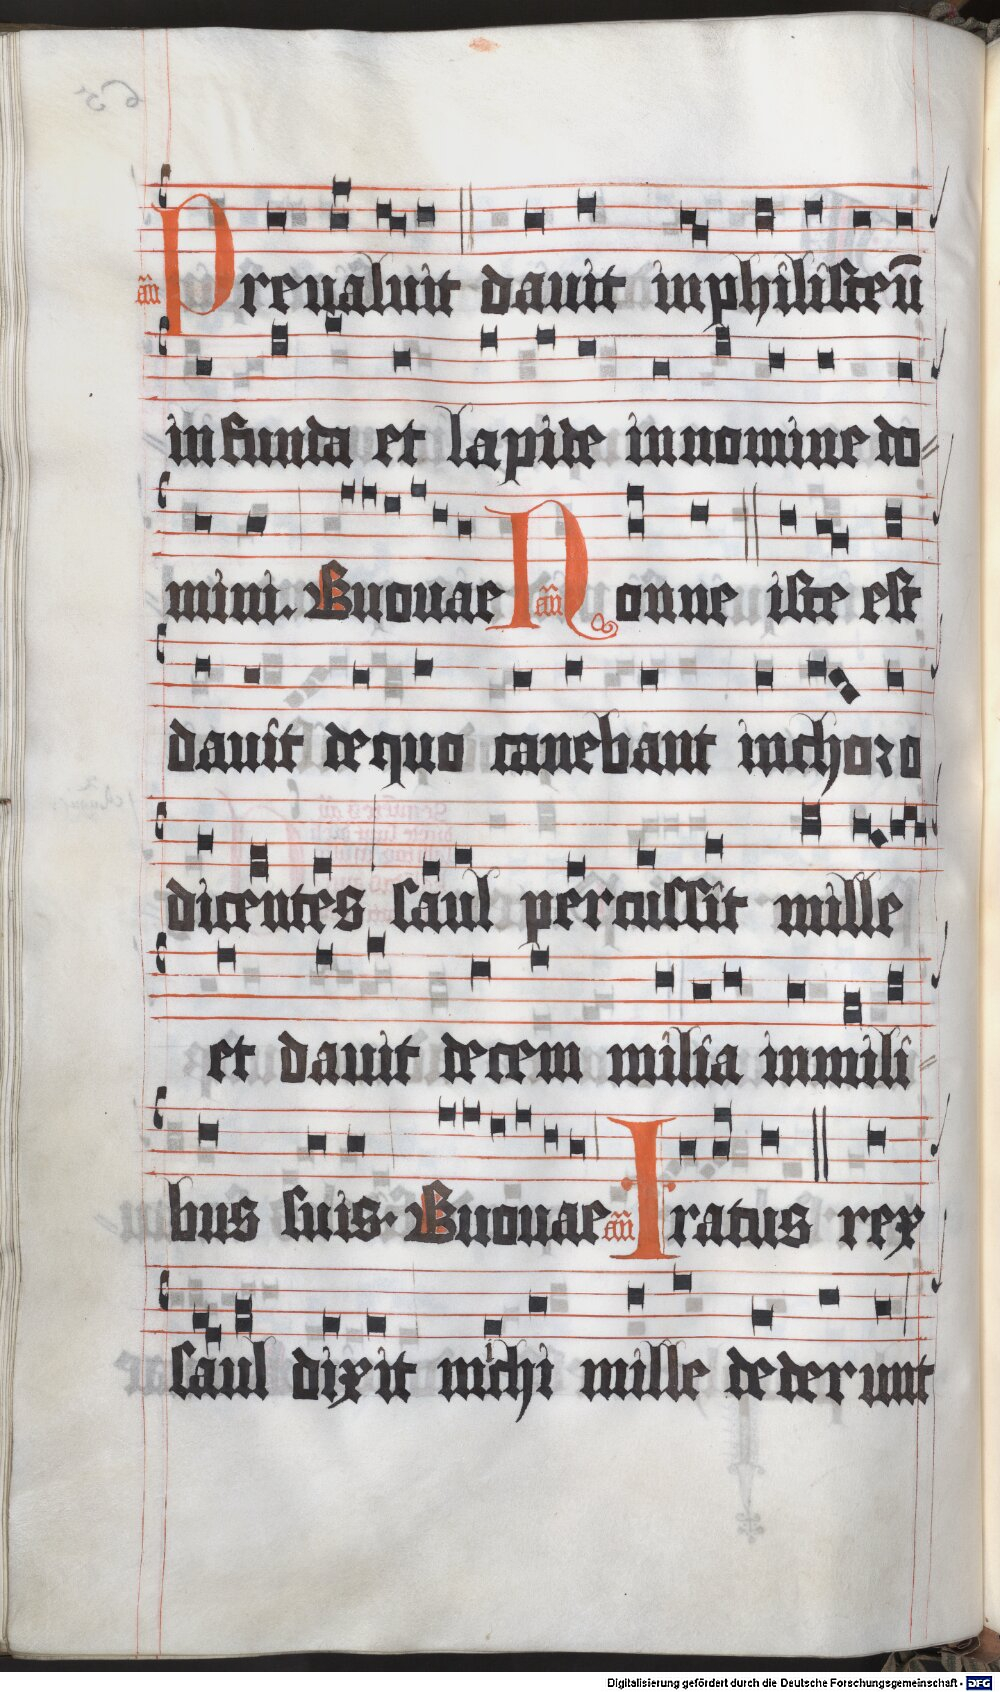 añ Preualuit dauit inphilisteū
infunda et lapide innomine do⸗
mini. Euouae añ Nonne iste est
dauit dequo canebant inchoro
dicentes saul percussit mille
et dauit decem milia inmili⸗
bus suis. Euouae añ Iratus rex
saul dixit michi mille dederunt
Digitalisierung gefördert durch die Deutsche Forschungsgemeinschaft - DFG